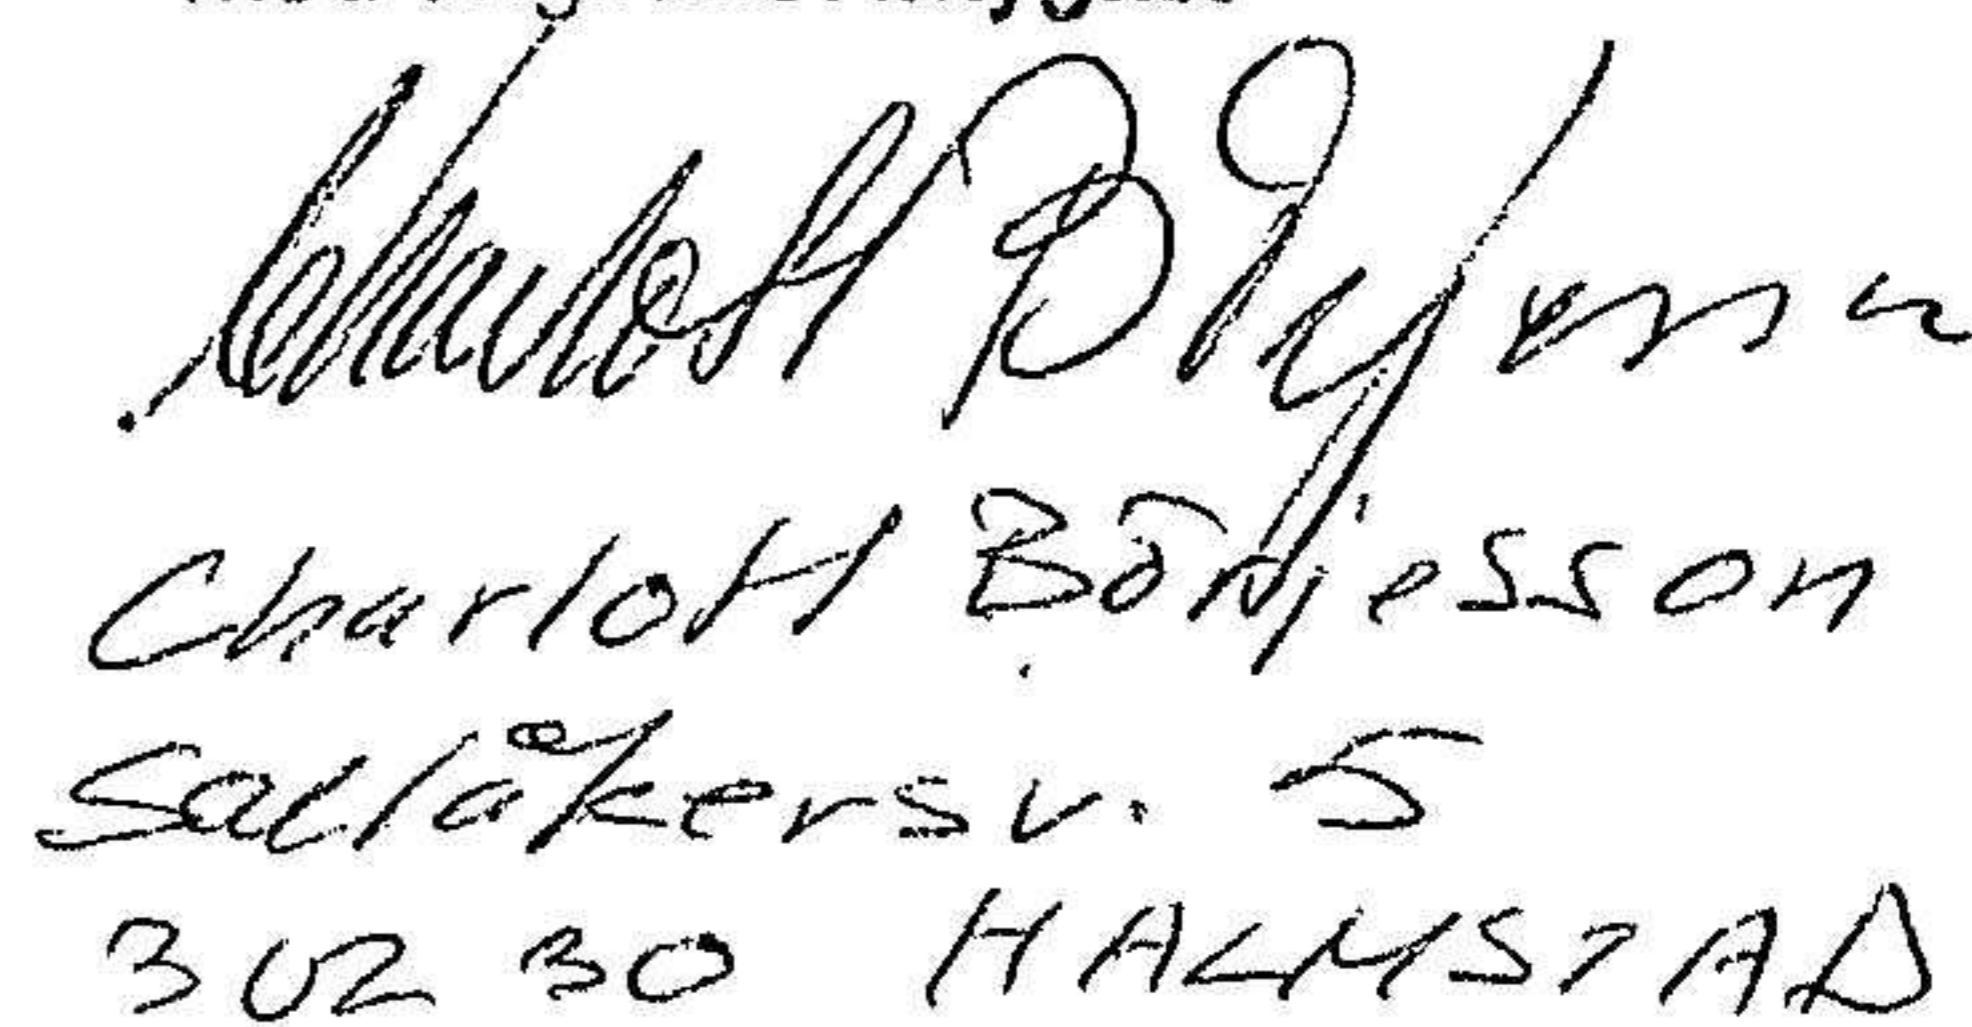 Charlott Börjesson
Charlott Börjesson
Sallåkersv. 5
302 30 HALMSTAD